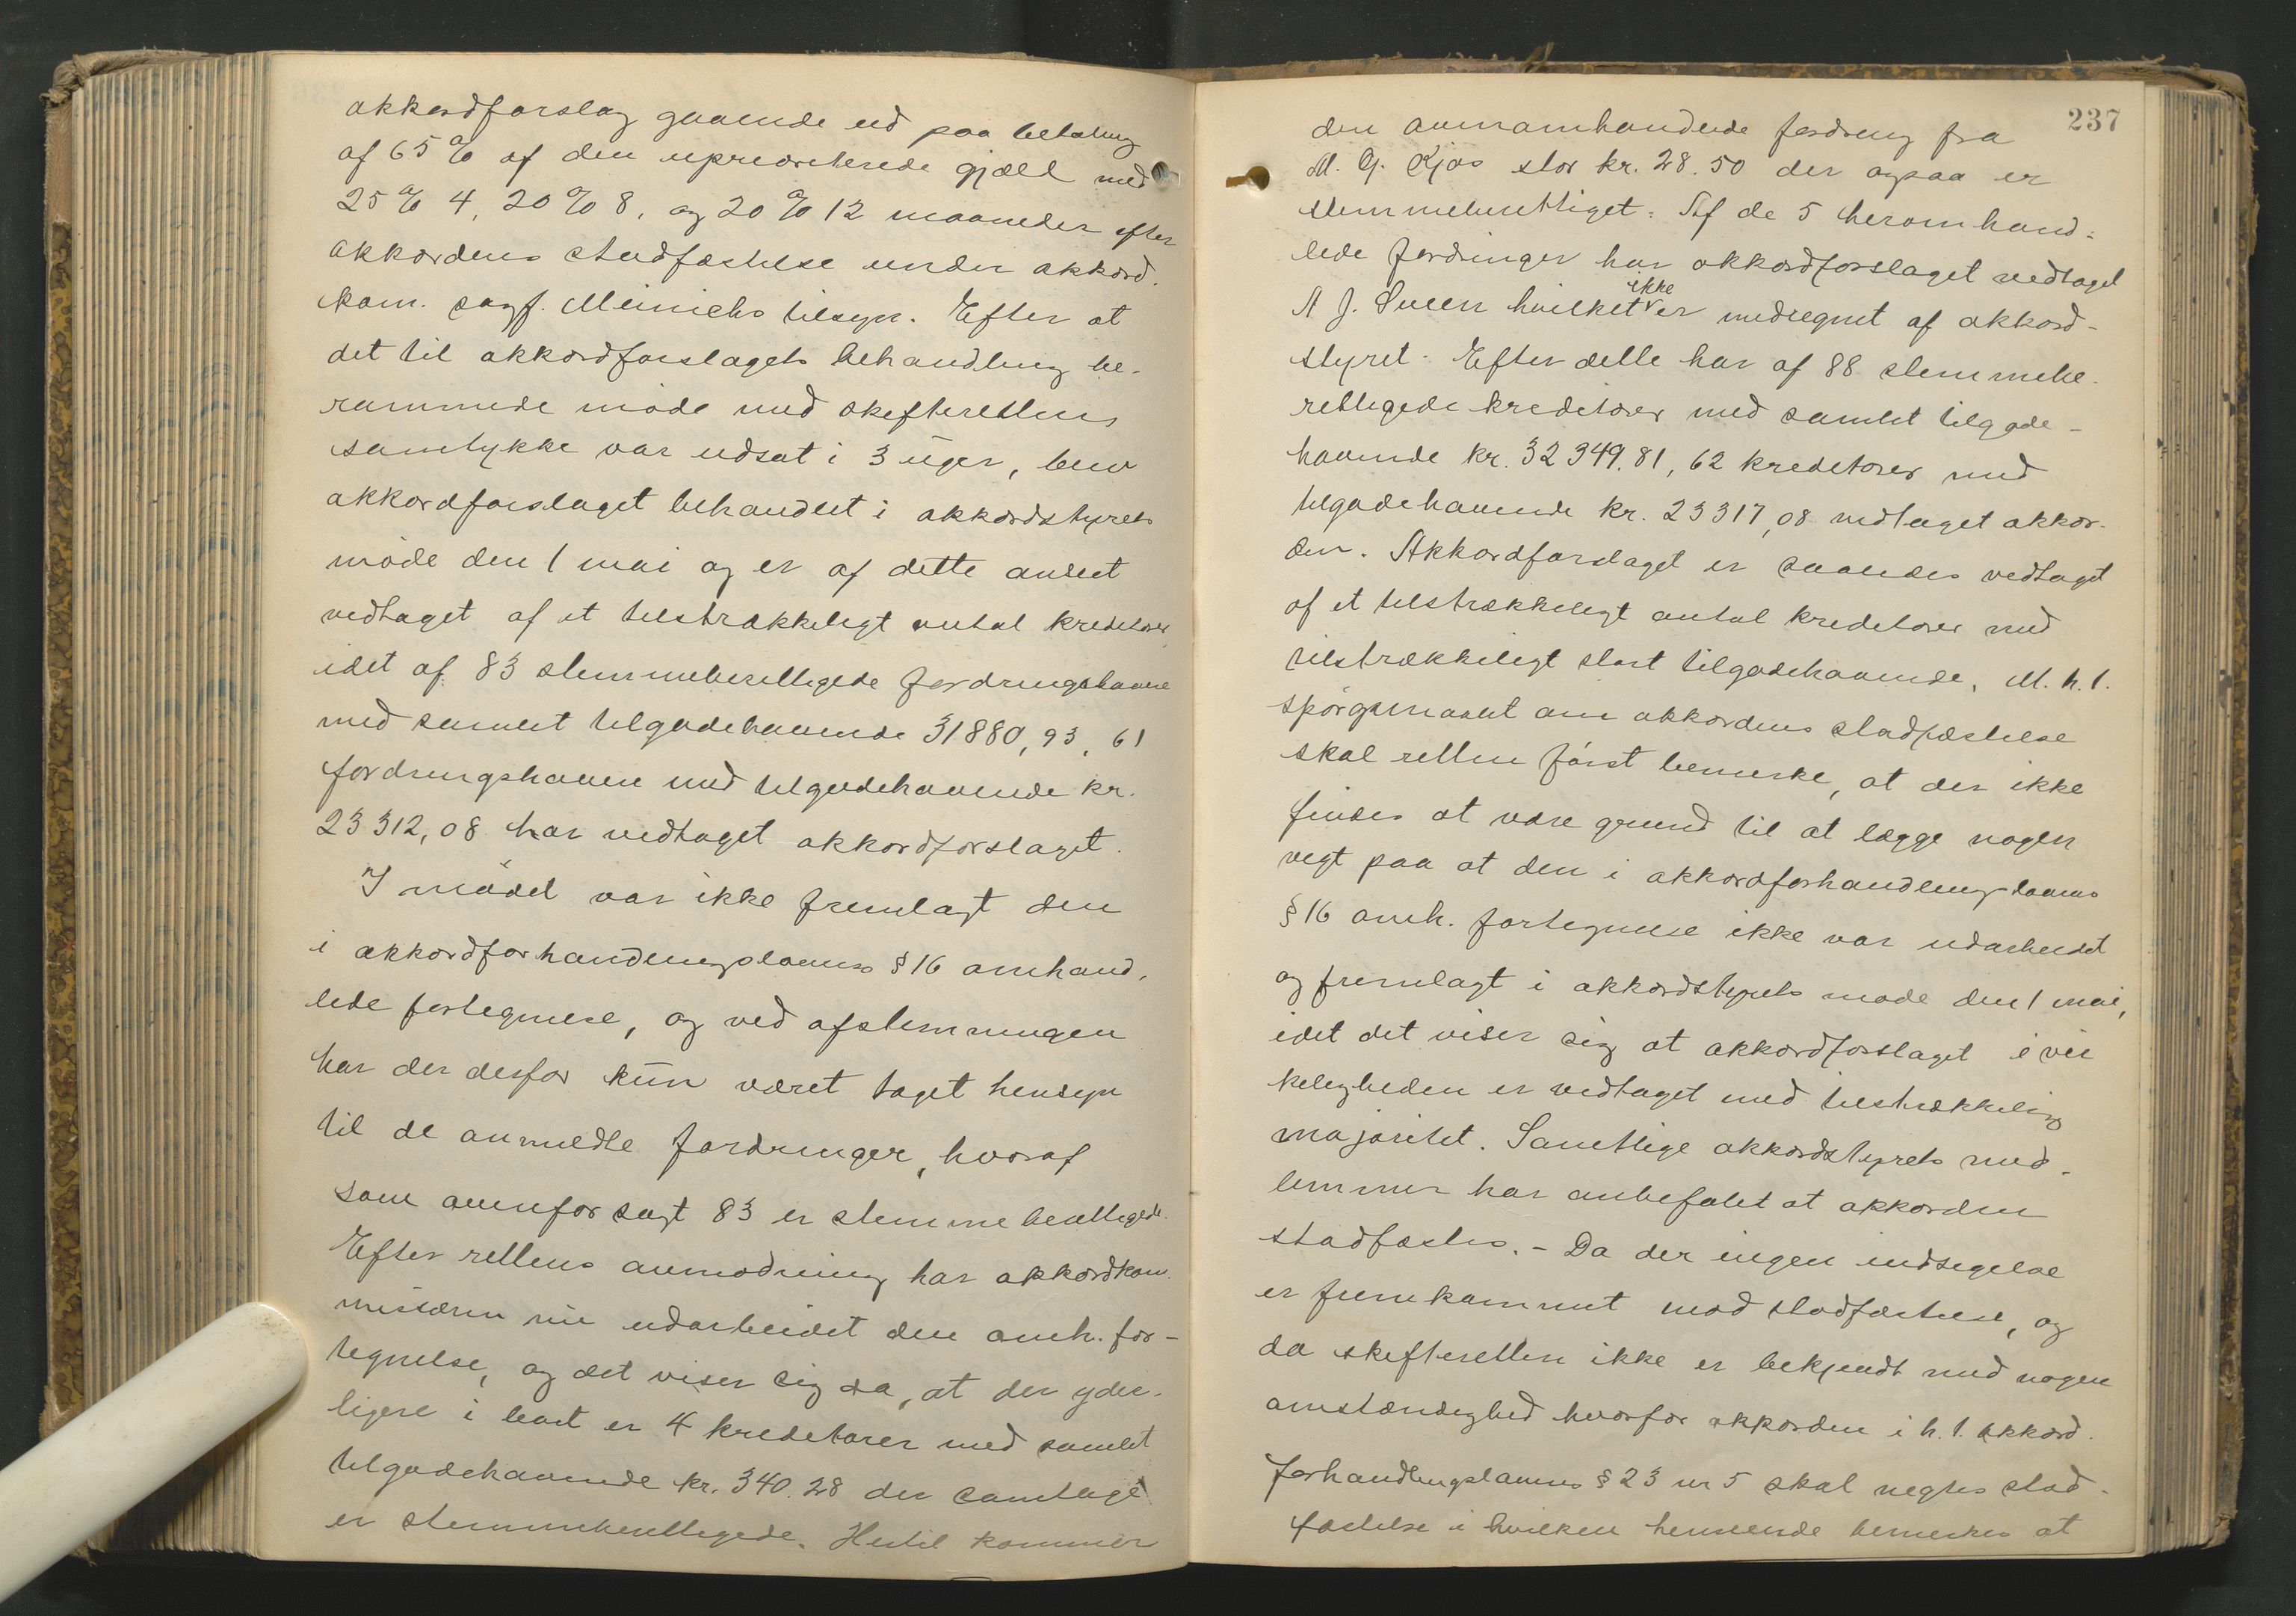 akkordforslag gaaende ud paa betaling
af 65 % af den uprioriterede gjæld med
25 % 4, 20 % 8, og 20 % 12 maaneder efter
akkordens stadfæstelse under akkord.
kom. sagf. Meinichs tilsyn. Efter at
det til akkordforslagets behandling be-
rammede møde med skifterettens
samtykke var udsat i 3 uger, blev
akkordforslaget behandlet i akkordstyrets
møde den 1 mai og er af dette anseet
vedtaget af et tilstrækkeligt antal kreditorer
idet af 83 stemmeberettigede fordringshavere
med samlet tilgodehavende 31880,93, 61
fordringshavere med tilgodehavende kr.
23 312,08 har vedtaget akkordforslaget.
I mødet var ikke fremlagt den
i akkordforhandlingslovens § 16 omhand-
lede fortegnelse, og ved afstemningen
har der derfor kun været taget hensyn
til de anmeldte fordringer, hvoraf
som ovenfor sagt 83 er stemmeberettigede.
Efter rettens anmodning har akkordkom-
missæren nu udarbeidet den omh. for-
tegnelse, og det viser sig da, at der yder-
ligere i boet er 4 kreditorer med samlet
tilgodehavende kr. 340.28 der samtlige
er stemmeberettigede. Hertil kommer
237
den ovenomhandlede fordring fra
M. G. Kjøs stor kr. 28.50 der ogsaa er
stemmeberettiget. Af de 5 heromhand-
lede fordringer har akkordforslaget vedtaget
A J. Sveen hvilket ikke er medregnet af akkord-
styret. Efter dette har af 88 stemmebe-
rettigede kreditorer med samlet tilgode-
havende kr. 32 349.81, 62 kreditorer med
tilgodehavende kr. 23317,08 vedtaget akkor-
den. Akkordforslaget er saaledes vedtaget
af et tilstrækkeligt antal kreditorer med
tilstrækkeligt stort tilgodehavende. M. h. t.
spørgsmaalet om akkordens stadfæstelse
skal retten først bemerke, at der ikke
findes at være grund til at lægge nogen
vegt paa at den i akkordforhandlingslovens
§ 16 omh. fortegnelse ikke var udarbeidet
og fremlagt i akkordstyrets møde den 1 mai,
idet det viser sig at akkordforslaget i vir
keligheden er vedtaget med tilstrækkelig
majoritet. Samtlige akkordstyrets med-
lemmer har anbefalet at akkorden
stadfæstes. - Da der ingen indsigelse
er fremkommet mod stadfæstelse, og
da skifteretten ikke er bekjendt med nogen
omstændighed hvorfor akkorden i h. t. akkord-
forhandlingslovens § 23 nr 5 skal negtes stad-
fæstelse i hvilken henseende bemerkes at